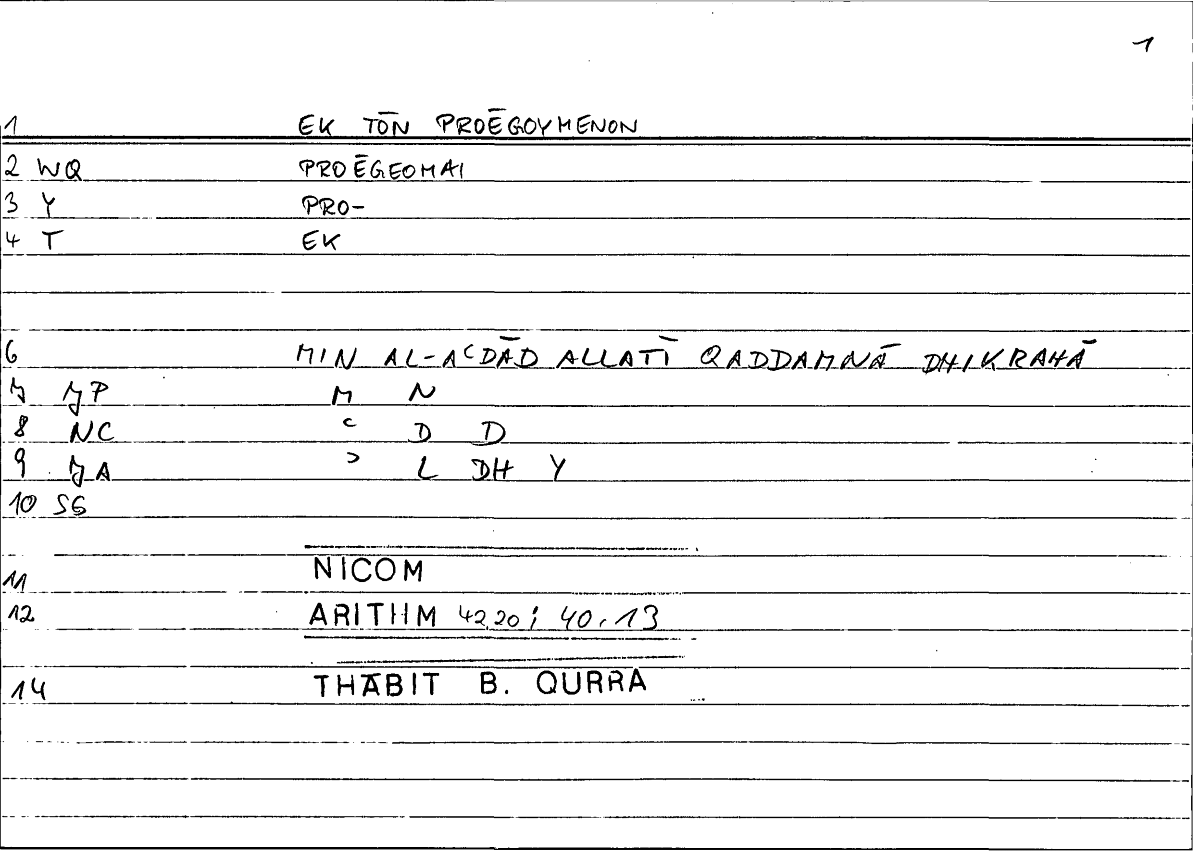 1
1 EK TŌN PROĒGOYMENON
2 WQ PROĒGEOMAI
3 Y PRO-
4 T EK
6 MIN AL-AʿDĀD ALLATĪ QADDAMNĀ DHIKRAHĀ
7 JP M N
8 NC ʿ D D
9 JA ʾ L DH Y
10 SG
11 NICOM
12 ARITHM 42,20; 40,13
14 THĀBIT B. QURRA